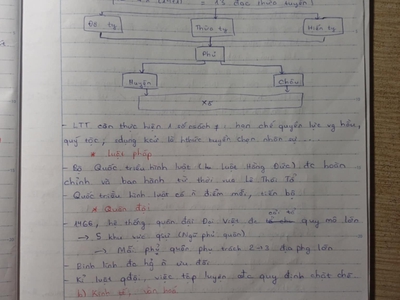 = 13 đạo thừa tuyên)
Đô ty
Thừa ty
Hiến ty
Phủ
Huyện
Châu
Xã
- LTT còn thực hiện 1 số csách: hạn chế quyền lực
quý tộc, dùng hình thức tuyển chọn nhân sự ...
* Luật pháp
- Bộ Quốc triều hình luật (hay luật Hồng Đức) đc hoàn
chỉnh và ban hành từ thời vua Lê Thái Tổ
- Quốc triều hình luật có điểm mới, tiến bộ
* Quân đội
- 1466, hệ thống quân đội Đại Việt đc quy mô lớn
→ 5 khu vực quân (Ngũ phủ quân)
→ Mỗi phủ quân phụ trách 2→3 địa phg lớn
- Binh lính đc hg ưu đãi
- Kỉ luật qđội, việc tập luyện đc quy định chặt chẽ
b) Kinh tế, văn hoá